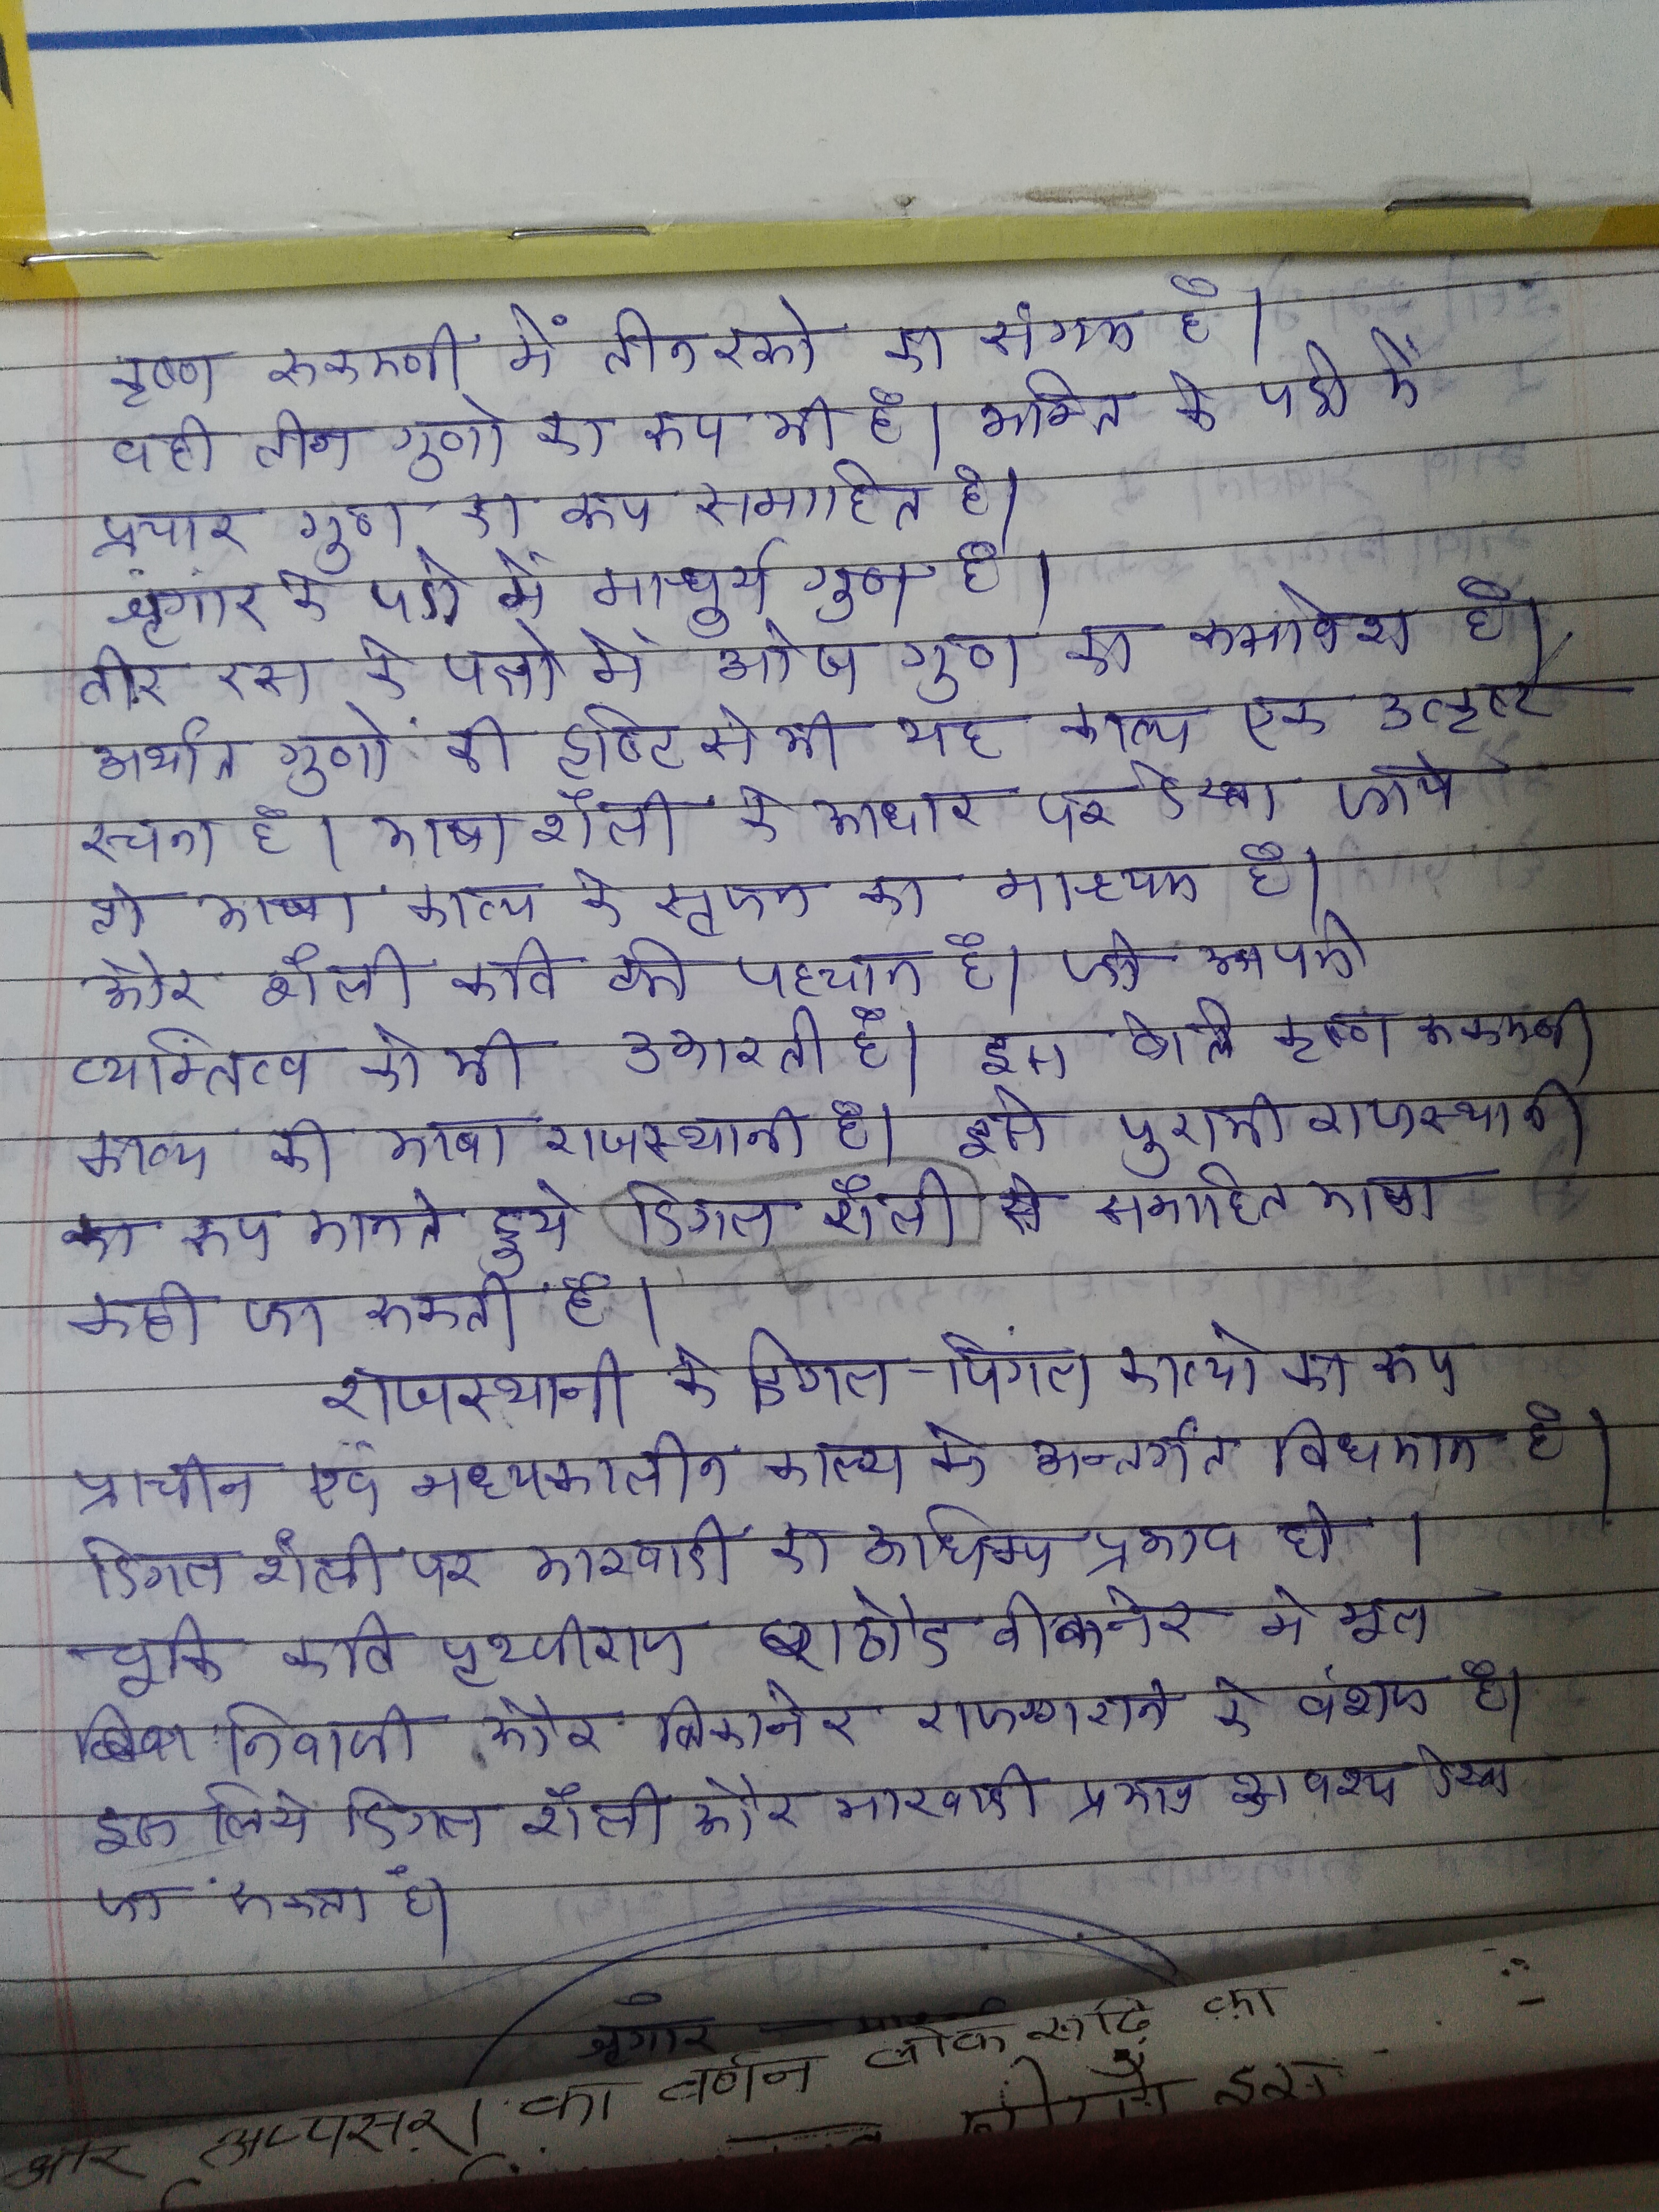 कृष्ण रूकमणी में तीन रसो का संगम है।
वही तीन गुणो का रूप भी है। भक्ति के पदो में
प्रचार गुण का रूप समाहित है।
श्रृंगार के पदो में माधुर्य गुण है।
वीर रस के पदो में ओज गुण का समावेश है।
अर्थात गुणों की दृष्टि से भी यह काव्य एक उत्कृष्ट
रचना है। भाषा शैली के आधार पर देखा जाये
तो भाषा काव्य के सृजन का माध्यम है।
और शैली कवि की पहचान है। जो अपनी
व्यक्तित्व को भी उभारती है। इस वेलि कृष्ण रूकमणी
काव्य की भाषा राजस्थानी है। इसे पुरानी राजस्थानी
का रूप मानते हुये डिगल शैली से समाहित भाषा
कही जा सकती है।
राजस्थानी के डिगल-पिंगल काव्यो का रूप
प्राचीन एवं मध्यकालीन काव्य के अन्तर्गत विधमान है।
डिगल शैली पर मारवाडी का आधिक्य प्रभाव हो।
चूकि कवि पृथ्वीराज राठौड बीकानेर मे मूल
निवासी और बिकानेर राजघराने के वंशज है।
इस लिये डिगल शैली और मारवाडी प्रभाव अवश्य देखा
जा सकता है।
श्रृंगार
और अप्पसरा का वर्णन लोक रूढि का
इस